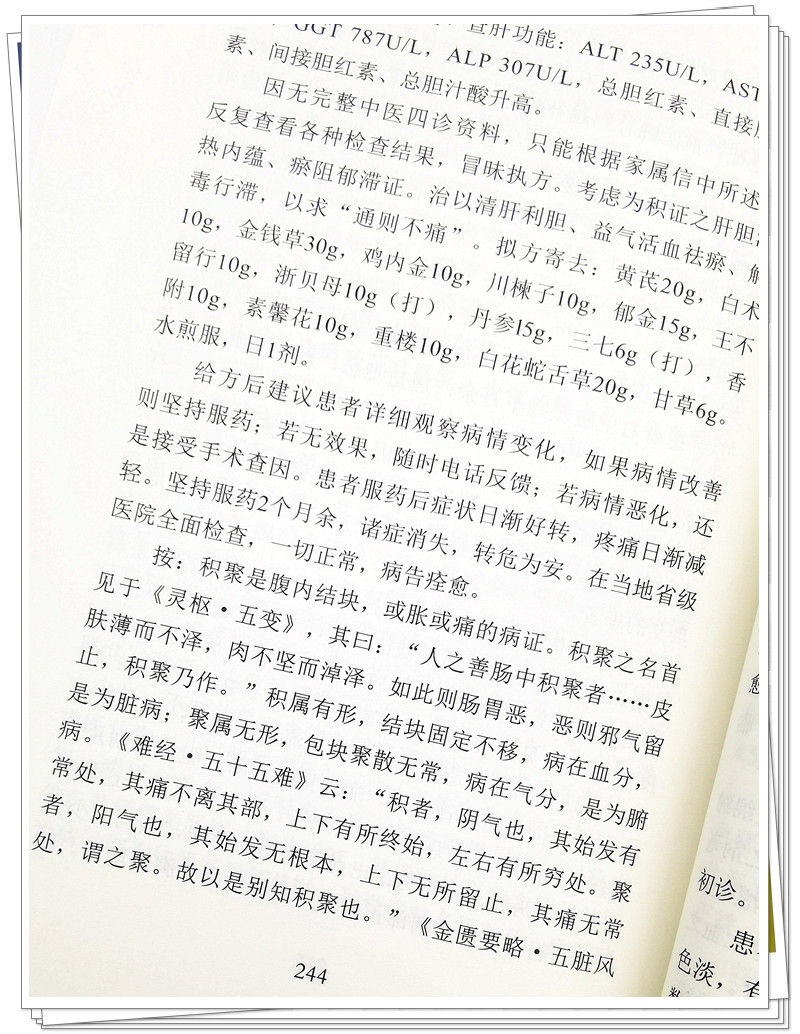 查肝功能：ALT 235U/L，AST
GGT 787U/L，ALP 307U/L，总胆红素、直接胆
素、间接胆红素、总胆汁酸升高。
因无完整中医四诊资料，只能根据家属信中所述
反复查看各种检查结果，冒昧执方。考虑为积证之肝胆
热内蕴、瘀阻郁滞证。治以清肝利胆、益气活血祛瘀、解
毒行滞，以求“通则不痛”。拟方寄去：黄芪20g，白术
10g，金钱草30g，鸡内金10g，川楝子10g，郁金15g，王不
留行10g，浙贝母10g（打），丹参l5g，三七6g（打），香
附10g，素馨花10g，重楼10g，白花蛇舌草20g，甘草6g。
水煎服，日1剂。
给方后建议患者详细观察病情变化，如果病情改善
则坚持服药；若无效果，随时电话反馈；若病情恶化，还
是接受手术查因。患者服药后症状日渐好转，疼痛日渐减
轻。坚持服药2个月余，诸症消失，转危为安。在当地省级
医院全面检查，一切正常，病告痊愈。
按：积聚是腹内结块，或胀或痛的病证。积聚之名首
见于《灵枢·五变》，其曰：“人之善肠中积聚者……皮
肤薄而不泽，肉不坚而淖泽。如此则肠胃恶，恶则邪气留
止，积聚乃作。”积属有形，结块固定不移，病在血分，
是为脏病；聚属无形，包块聚散无常，病在气分，是为腑
病。《难经·五十五难》云：“积者，阴气也，其始发有
常处，其痛不离其部，上下有所终始，左右有所穷处。聚
者，阳气也，其始发无根本，上下无所留止，其痛无常
处，谓之聚。故以是别知积聚也。”《金匮要略·五脏风
244
愈
初诊。
患
色淡，有